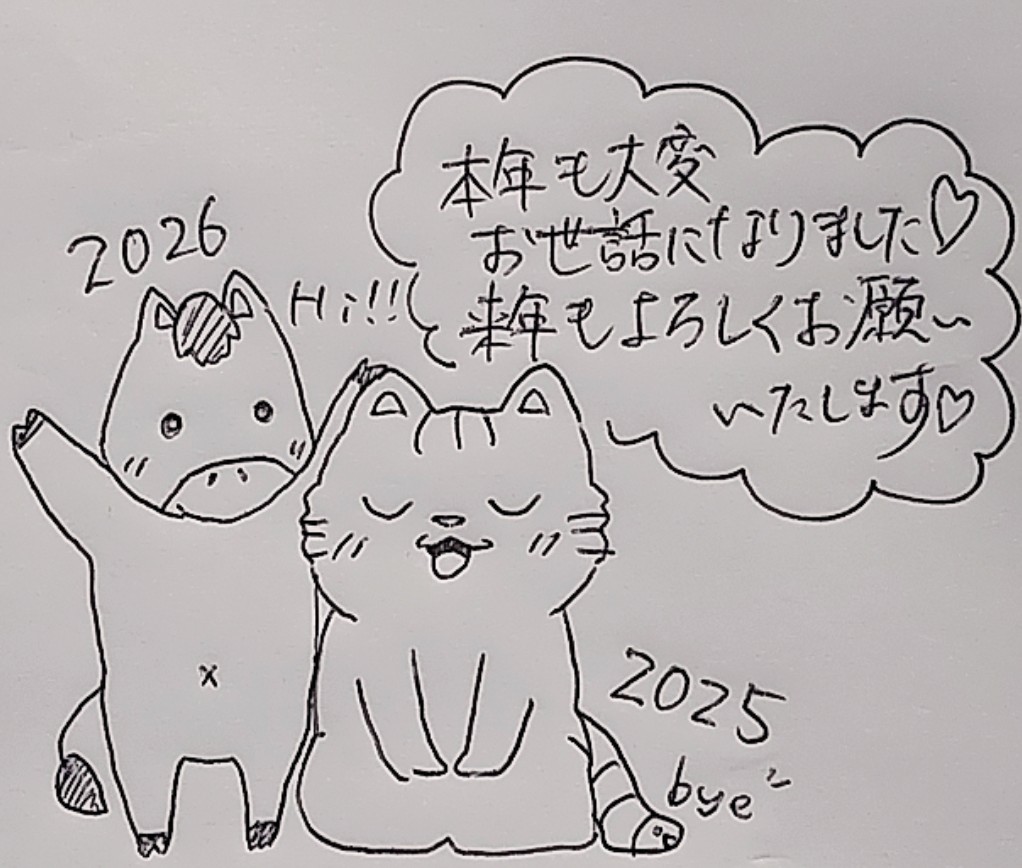 2026
Hi!!
本年も大変
お世話になりました♡
来年もよろしくお願い
いたします♡
2025
bye~